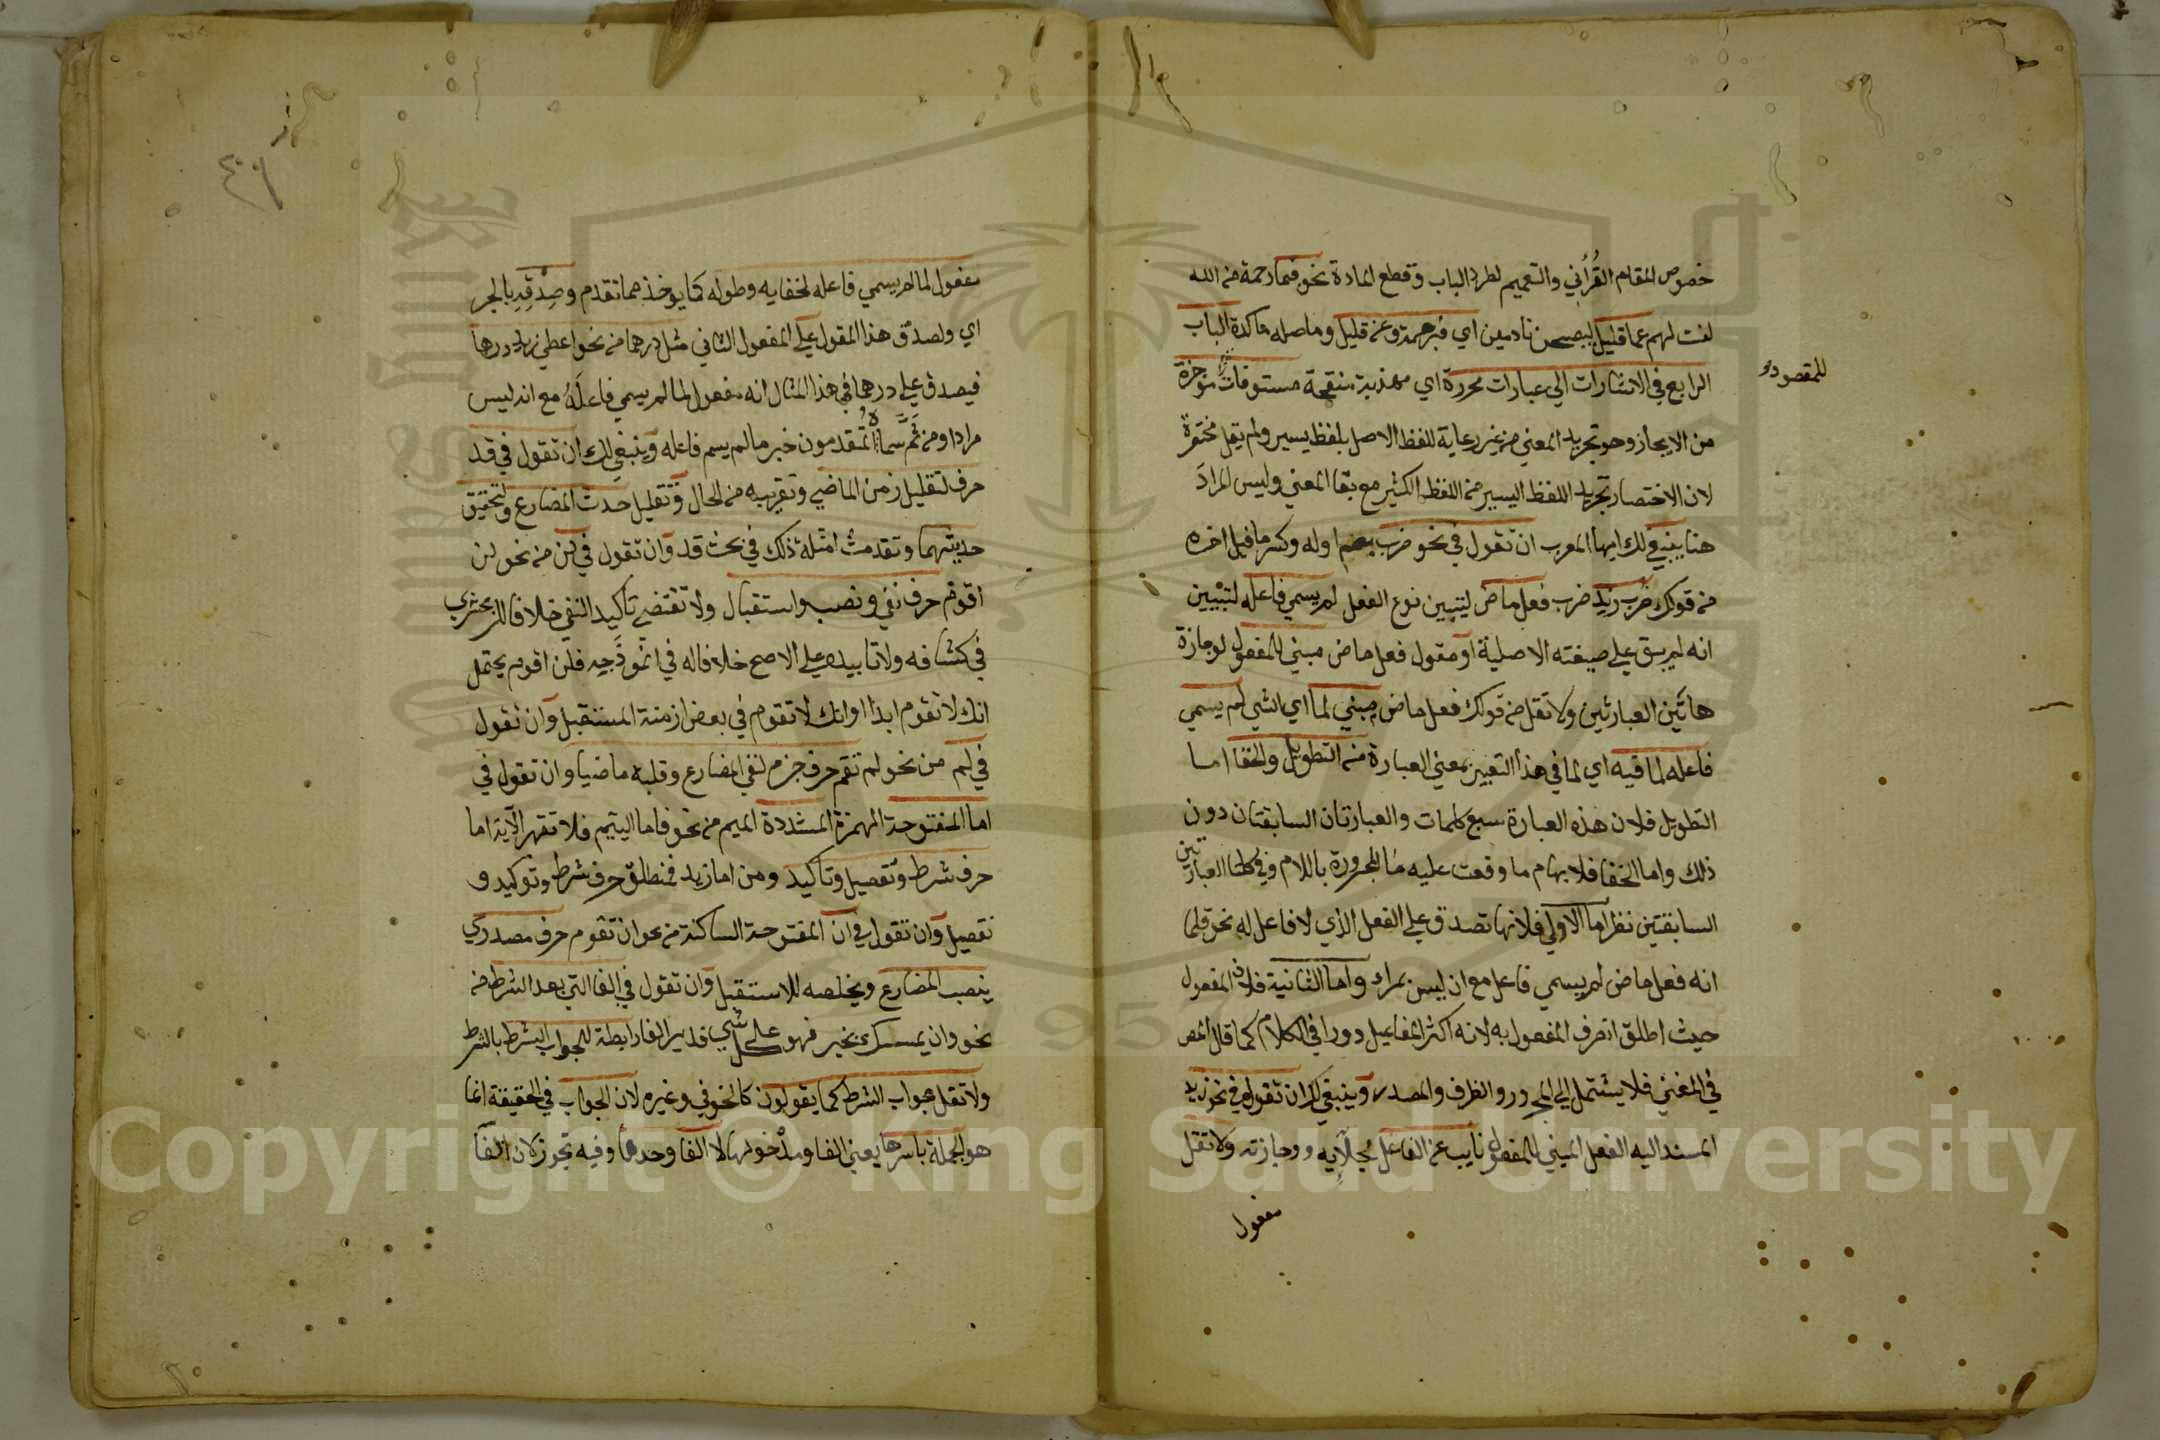 خصوص المقام القرآني والتعميم لطرد الباب وقطع المادة نحو فبما رحمة من الله
لنت لهم عما قليل ليصبحن نادمين اي فبرحمة وعن قليل وما صله ماكدة الباب
للمقصود
الرابع في الاشارات الي عبارات محررة اي مهذبة منقحة مستوفات موجزة
من الايجاز وهو تجريد المعني من غير رعاية للفظ الاصل بلفظ يسير ولم يقل مختصرة
لان الاختصار تجريد اللفظ اليسير من اللفظ الكثير مع بقا المعني وليس المراد
هنا ينبغي لك ايها المعرب ان تقول في نحو ضرب بضم اوله وكسر ما قبل اخره
من قولك ضرب زيد ضرب فعل ماض ليتبين نوع الفعل لم يسمي فاعله لتبيين
انه لم يبق علي صيغته الاصلية او مقول فعل ماض مبني للمفعول لوجازة
هاتين العبارتين ولا تقل من قولك فعل ماض مبني لما اي الشي لم يسمي
فاعله لما فيه اي لما في هذا التعبير بمعني العبارة من التطويل والخفا اما
التطويل فلان هذه العبارة سبع كلمات والعبارتان السابقتان دون
ذلك واما الخفا فلابهام ما وقعت عليه ما المجرورة باللام وفي كلتا العبارتين
السابقتين نظر اما الاولي فلانها تصدق علي الفعل الذي لا فاعل له نحو قلما
انه فعل ماض لم يسمي فاعل مع ان ليس بمراد واما الثانية فلان المفعول
حيث اطلق انصرف المفعول به لانه اكثر المفاعيل دورا في الكلام كما قال المص
في المغني فلا يشتمل الي المجرور والظرف والمصدر وينبغي لك ان تقول في نحو زيد
المسند اليه الفعل المبني للمفعول نايب عن الفاعل لجلايه ووجازته ولا تقل
مفعول
مفعول لما لم يسمي فاعله لخفايه وطوله كما يوخذ مما تقدم وصدقه بالجر
اي ولصدق هذا المقول علي المفعول الثاني مثل درهما من نحو اعطي زيد درهما
فيصدق علي درهما في هذا المثال انه مفعول لما لم يسمي فاعله مع انه ليس
مرادا ومن ثم سماه المتقدمون خبر ما لم يسم فاعله وينبغي لك ان تقول في قد
حرف لتقليل زمن الماضي وتقريبه من الحال وتقليل حدث المضارع ولتحقيق
حديثهما وتقدمت امثلة ذلك في بحث قد وان تقول في لن من نحو لن
اقوم حرف نفي ونصب واستقبال ولا تقتضي تاكيد النفي خلافا للزمخشري
في كشافه ولا تابيده علي الاصح خلافا له في انموذجه فلن اقوم يحتمل
انك لا تقوم ابدا او انك لا تقوم في بعض ازمنة المستقبل وان تقول
في لم من نحو لم تقم حرف جزم لنفي المضارع وقلبه ماضيا وان تقول في
اما المفتوحة الهمزة المشددة الميم من نحو فاما اليتيم فلا تقهر الآية اما
حرف شرط وتفصيل وتاكيد ومن اما زيد فمنطلق حرف شرط وتوكيد و
تفصيل وان تقول في ان المفتوحة الساكنة من نحو ان تقوم حرف مصدري
ينصب المضارع ويخلصه للاستقبل وان تقول في الفا التي بعد الشرط من
نحو وان يمسسك بخير فهو علي كل شي قدير الفا رابطة للجواب الشرط بالشرط
ولا تقل جواب الشرط كما يقولون كالخوفي وغيره لان الجواب في الحقيقة انما
هو الجملة باسرها يعني الفا ومدخولها لا الفا وحدها وفيه تجوز لان الفا
Copyright © King Saud University
1957